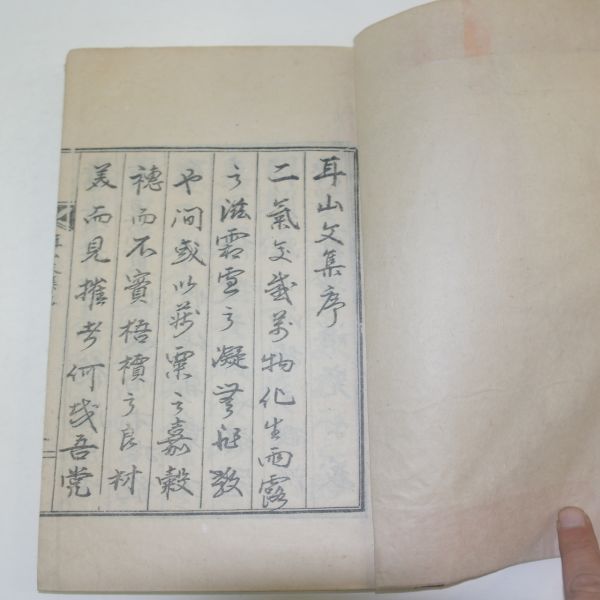 耳山文集序
二氣交感萬物化生雨露
之滋霜雪之凝無非敎
也間或以蓺粟之嘉穀
穗而不實梧檟之良材
美而見摧者何哉吾党